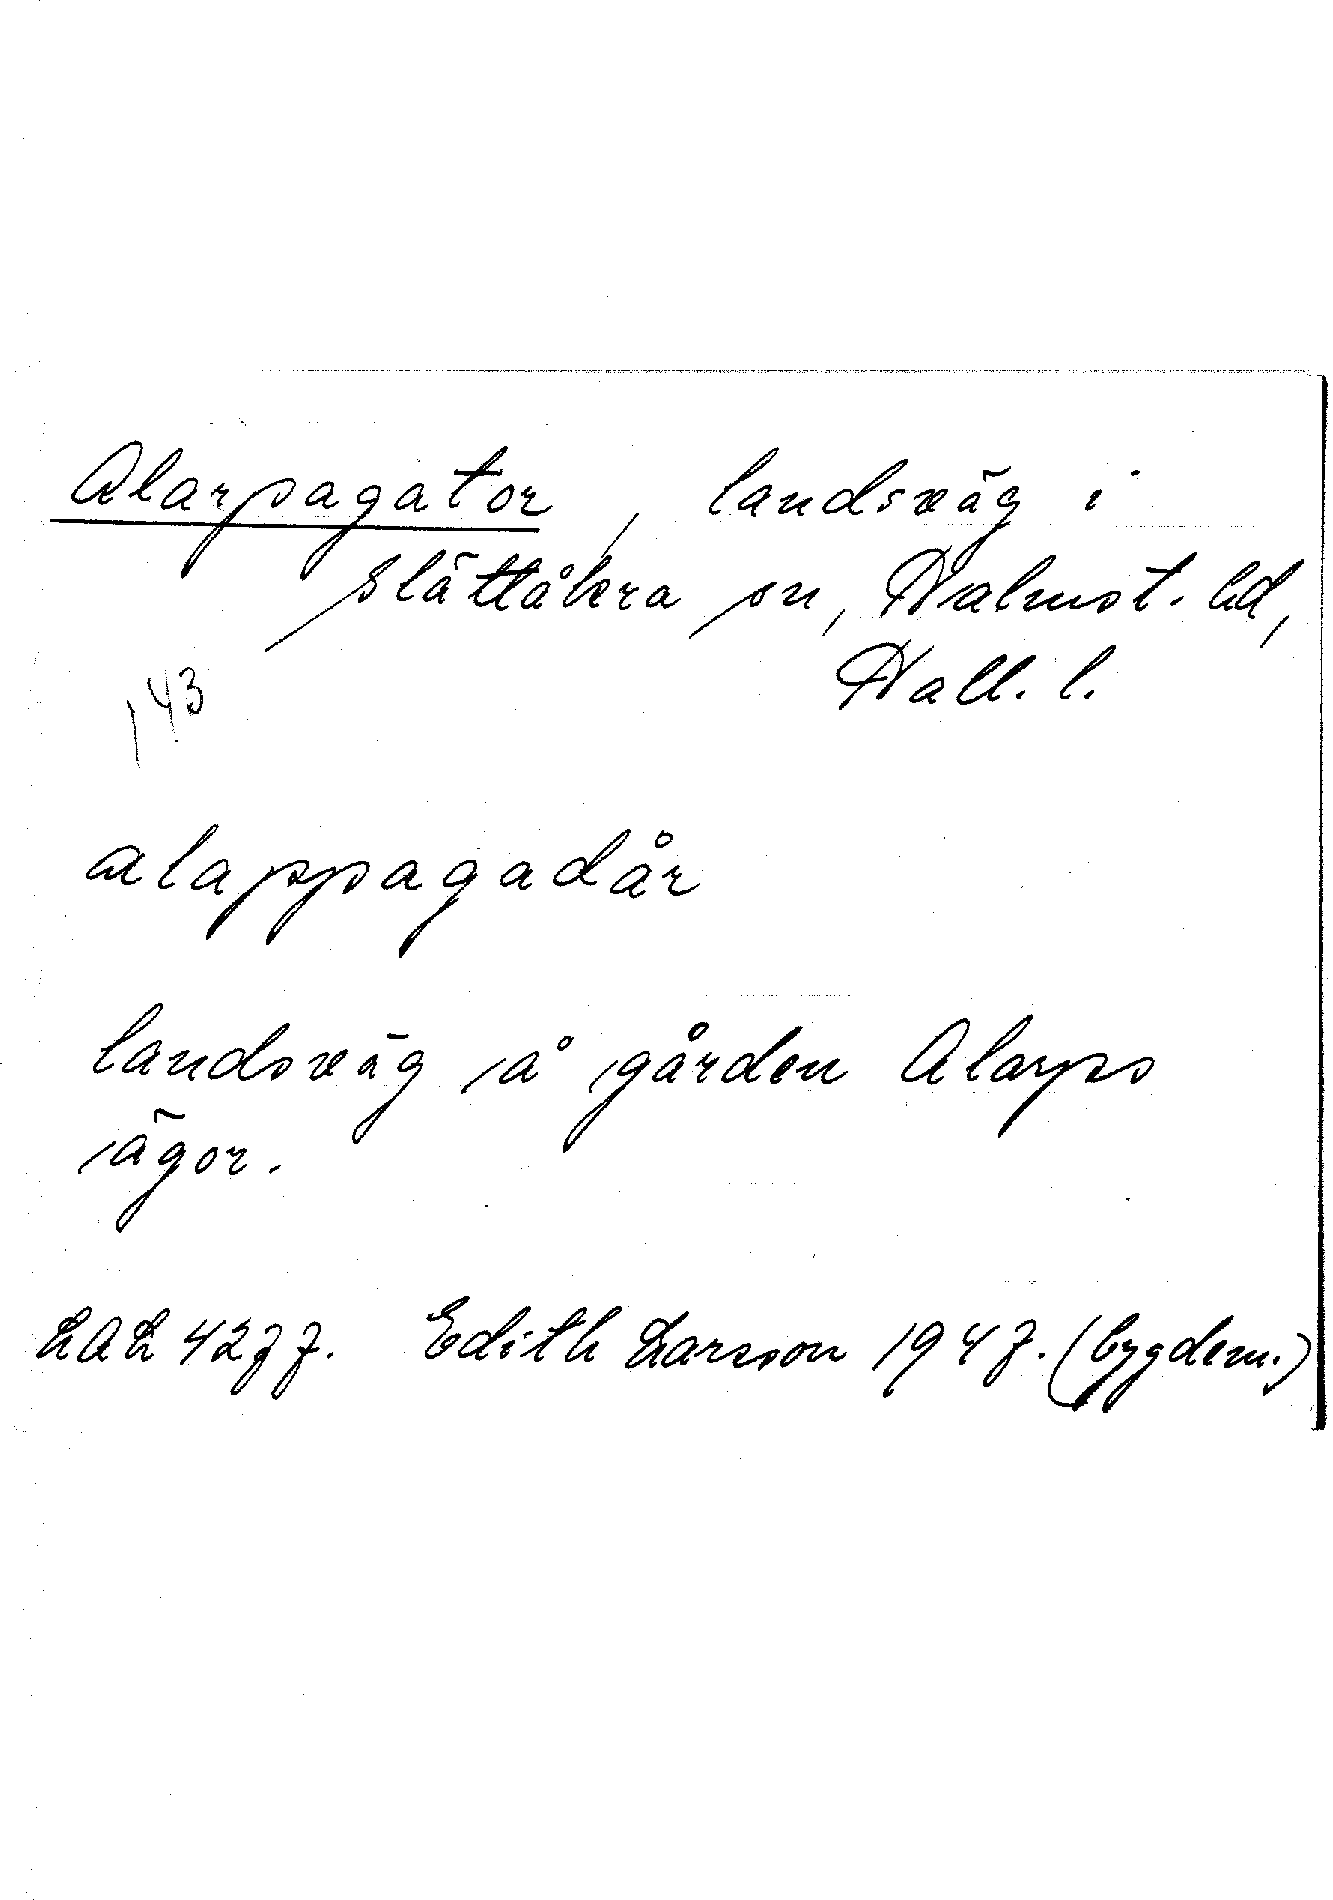 Alarpagator, landsväg i
Slättåkra sn, Halmst. hd,
Hall. l.
143
alappagadår
landsväg å gården Alarps
ägor.
LAL 4277. Edith Larsson 1947. (bygdem.)